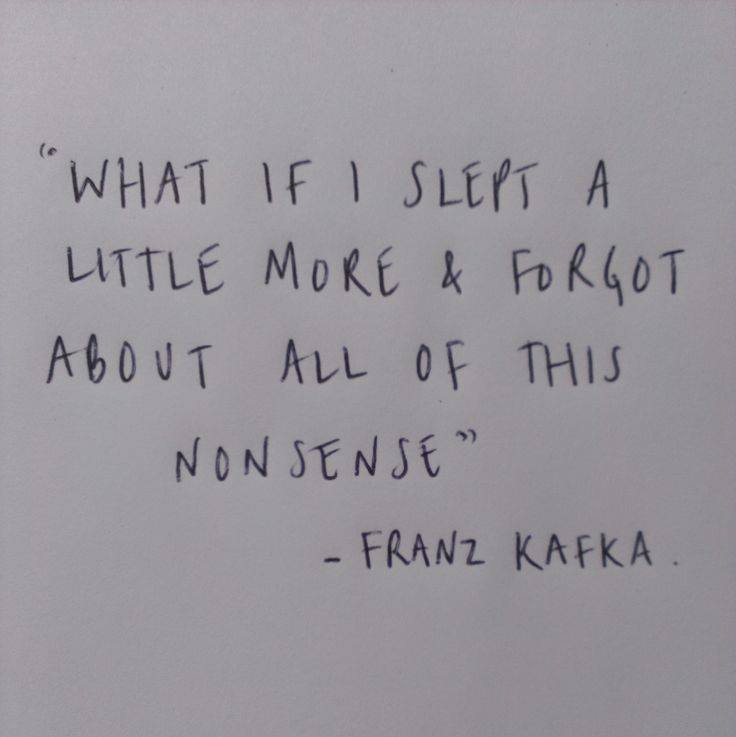 "WHAT IF I SLEPT A
LITTLE MORE & FORGOT
ABOUT ALL OF THIS
NONSENSE"
- FRANZ KAFKA.